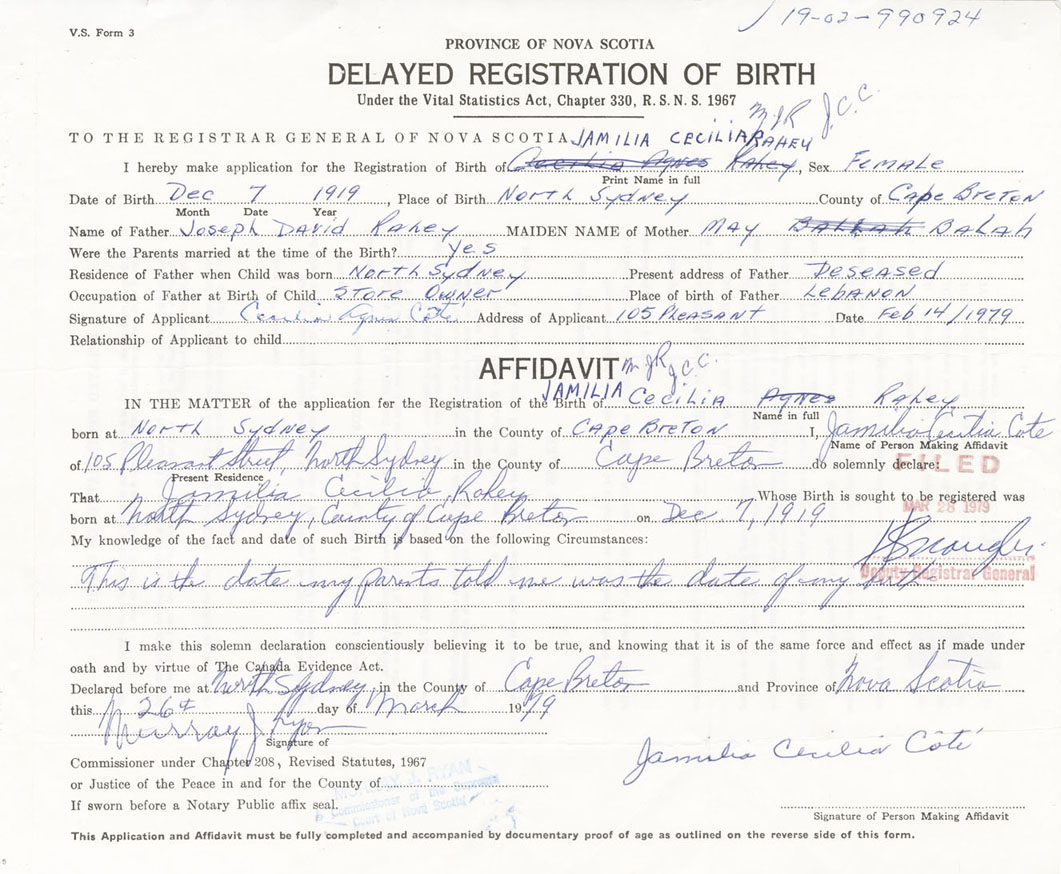 19-02-990924
V.S. Form 3
PROVINCE OF NOVA SCOTIA
DELAYED REGISTRATION OF BIRTH
Under the Vital Statistics Act, Chapter 330, R.S.N.S. 1967
MJR J.C.C.
TO THE REGISTRAR GENERAL OF NOVA SCOTIA JAMILIA CECILIA RAHEY
I hereby make application for the Registration of Birth of Cecilia Agnes Rahey, Sex FEMALE
Print Name in full
Date of Birth Dec 7 1919, Place of Birth NORTH SYDNEY County of CAPE BRETON
Month Date Year
Name of Father Joseph DAVID RAHEY MAIDEN NAME of Mother MAY BALAH
Were the Parents married at the time of the Birth? Yes
Residence of Father when Child was born NORTH SYDNEY Present address of Father DESEASED
Occupation of Father at Birth of Child STORE OWNER Place of birth of Father LEBANON
Signature of Applicant Cecilia Agnes Coté Address of Applicant 105 PLEASANT Date Feb 14/1979
Relationship of Applicant to child
AFFIDAVIT MJR J.C.C.
IN THE MATTER of the application for the Registration of the Birth of JAMILIA CECILIA AGNES RAHEY
Name in full
born at NORTH SYDNEY in the County of CAPE BRETON I, Jamilia Cecilia Cote
Name of Person Making Affidavit
of 105 Pleasant Street, North Sydney in the County of Cape Breton do solemnly declare:
Present Residence
FILED
That Jamilia Cecilia Rahey Whose Birth is sought to be registered was
MAR 28 1979
born at North Sydney, County of Cape Breton on Dec 7, 1919
My knowledge of the fact and date of such Birth is based on the following Circumstances:
This is the date my parents told me was the date of my birth
Deputy Registrar General
I make this solemn declaration conscientiously believing it to be true, and knowing that it is of the same force and effect as if made under
oath and by virtue of The Canada Evidence Act.
Declared before me at North Sydney, in the County of Cape Breton and Province of Nova Scotia
this 26th day of March 1979
Murray J Ryan
Signature of
Jamilia Cecilia Côté
Commissioner under Chapter 208, Revised Statutes, 1967
or Justice of the Peace in and for the County of
MURRAY J. RYAN
A Commissioner of the Supreme
Court of Nova Scotia
If sworn before a Notary Public affix seal.
Signature of Person Making Affidavit
This Application and Affidavit must be fully completed and accompanied by documentary proof of age as outlined on the reverse side of this form.